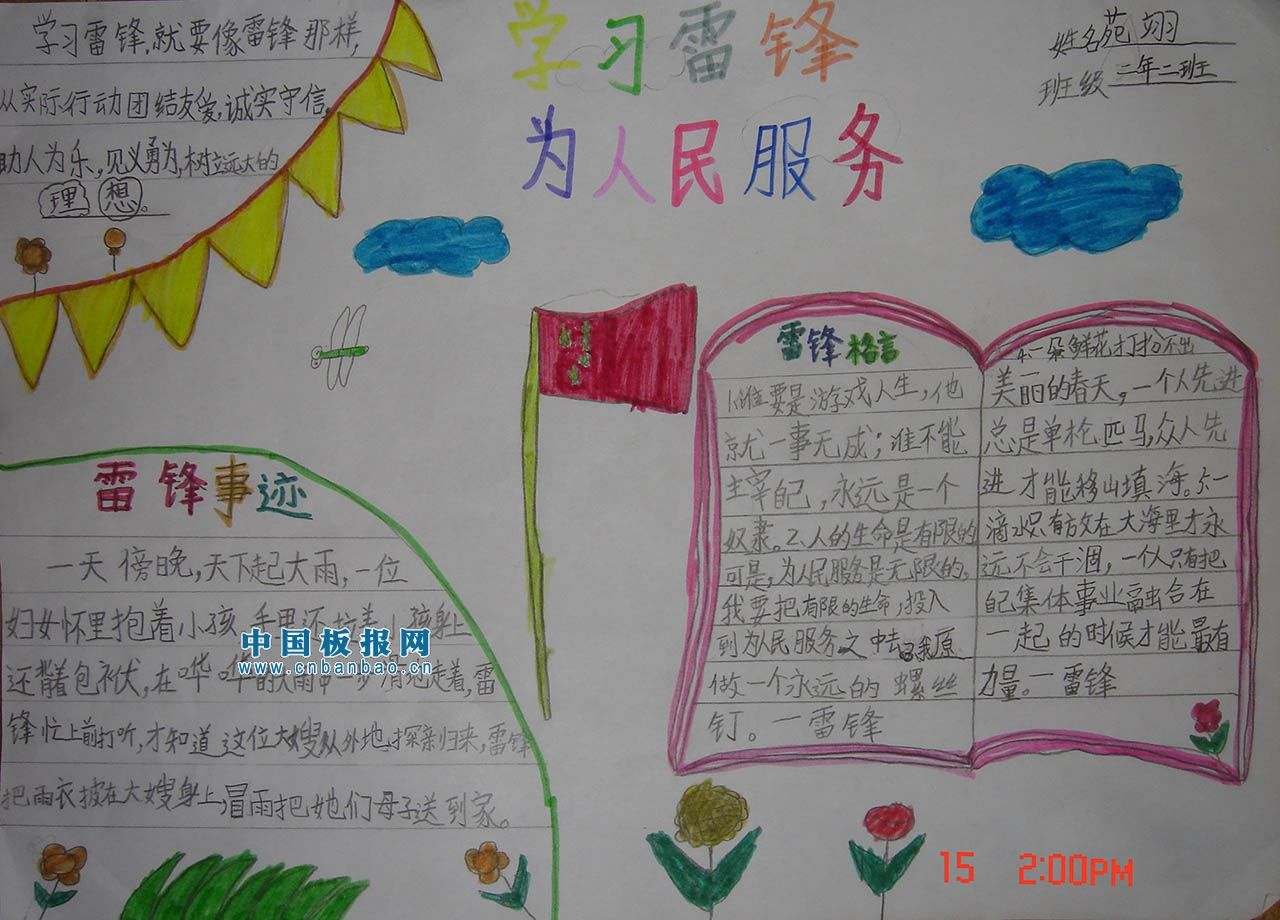 学习雷锋,就要像雷锋那样,
从实际行动团结友爱,诚实守信,
助人为乐,见义勇为,树立远大的
理想。
学习雷锋
为人民服务
姓名苑翊
班级二年二班
雷锋事迹
一天傍晚,天下起大雨,一位
妇女怀里抱着小孩,手里还拉着 孩身上
还背着包袱,在哗哗的大雨中一步 地走着,雷
锋忙上前打听,才知道这位大嫂从外地探亲归来,雷锋
把雨衣披在大嫂身上,冒雨把她们母子送到家。
中国板报网
www.cnbanbao.cn
雷锋格言
1.谁要是游戏人生,他
就一事无成;谁不能
主宰自己,永远是一个
奴隶。2.人的生命是有限的
可是,为人民服务是无限的,
我要把有限的生命,投入
到为人民服务之中去 我愿
做一个永远的螺丝
钉。一雷锋
4.一朵鲜花打扮不出
美丽的春天,一个人先进
总是单枪匹马,众人先
进才能移山填海。5.一
滴水只有放在大海里才永
远不会干涸,一个人只有把
自己集体事业融合在
一起的时候才能最有
力量。一雷锋
15 2:00PM